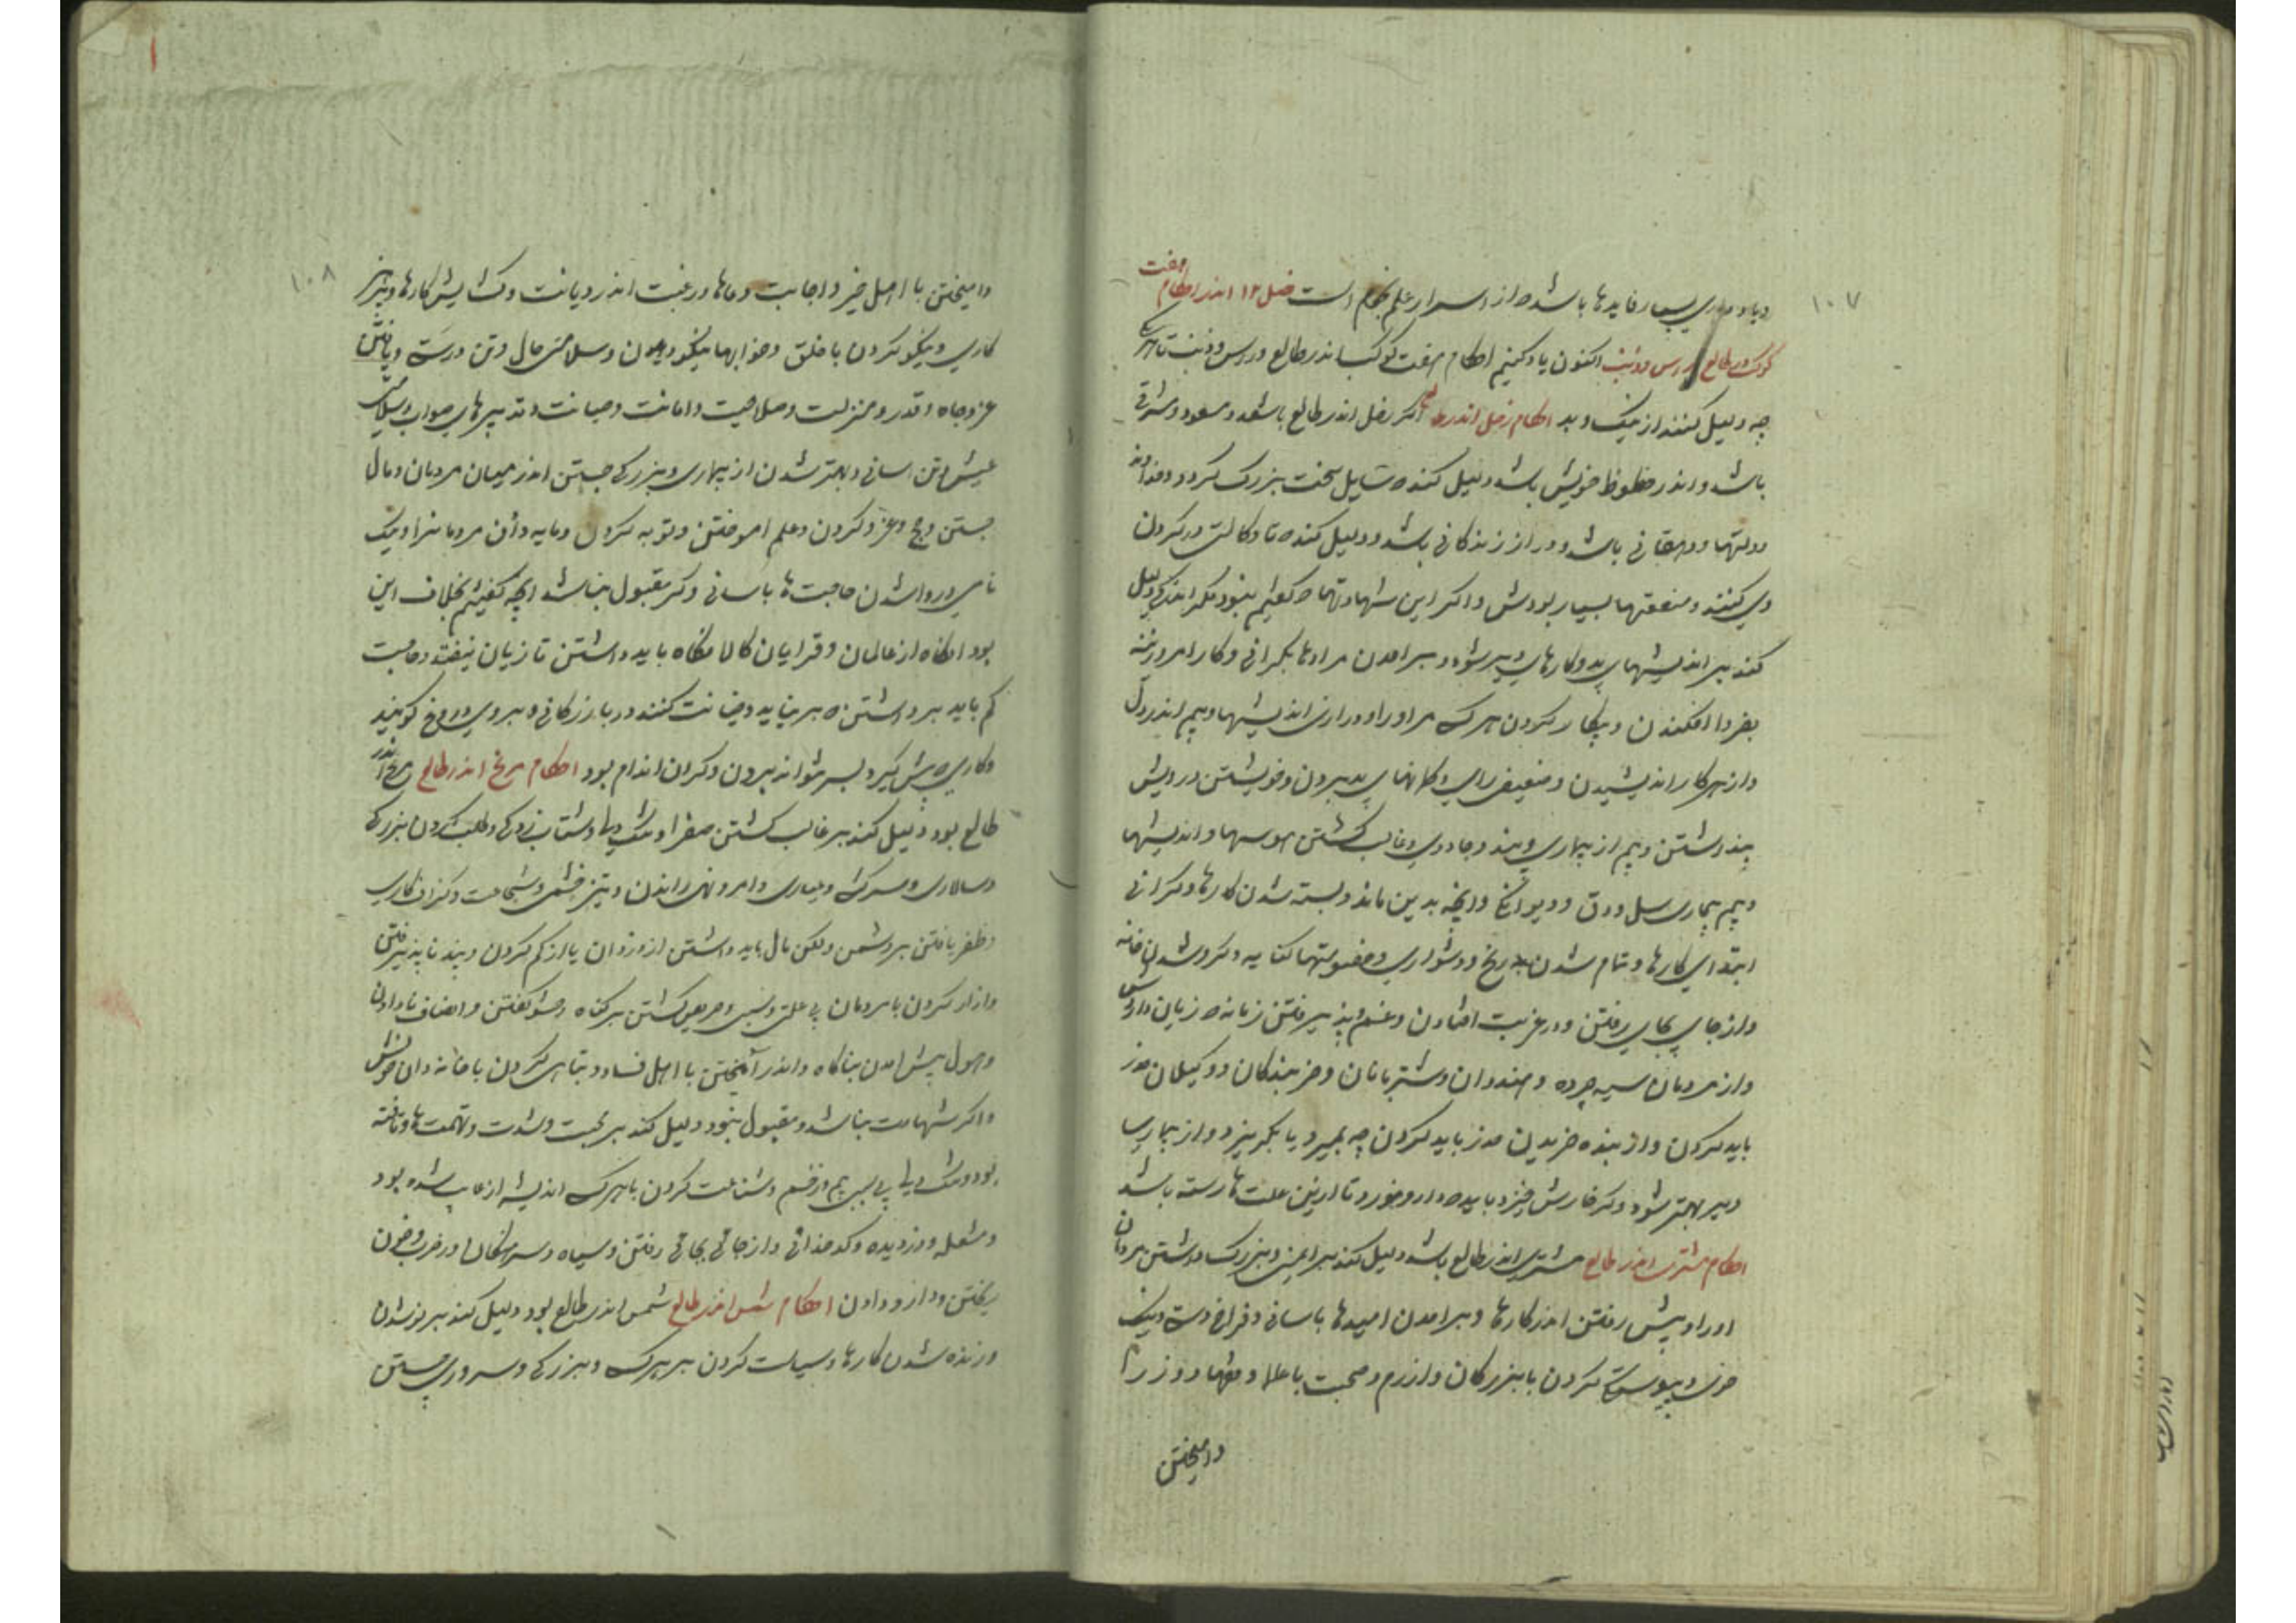 ۱۰۷
بسیار فایدها باشد ه از اسرار علم نجوم است فصل ۱۲ اندر احکام هفت
کوکب در طالع و راس و ذنب اکنون یاد کنیم احکام هفت کوکب اندر طالع و راس و ذنب تا هر یک
چه دلیل کنند از نیک و بد احکام زحل اندر طالع اکر زحل اندر طالع باشد و مسعود و مشرقی
باشد و اندر حظوظ خویش باشد دلیل کند ه سایل سخت بزرک کردد و خداوند
دولتها و دهقانی باشد و دراز زندکانی باشد و دلیل کند ه تا وکالت در کردن
وی کنند و منفعتها بسیار بودش و اکر این شهادتها ه کفتیم نبود مکر اندکی دلیل
کند بر اندیشهای بد و کارهای دیر شود و بر امدن مرادها بکرانی و کار امروزینه
بفردا افکندن و پیکار کردن هرکسی مر او را و درازی اندیشها و بیم اندر دل
و از هر کار اندیشیدن و ضعیفی رای و کمانهای بد بردن و خویشتن درویش
پنداشتن و بیم از بیماری و بند و جادوی و غالب کشتن هوسها و اندیشها
و بیم بیماری سل و دق و دیوانکی و انچه بدین ماند و بسته شدن کارها و کرانی
ابتدای کارها و تمام شدن برنج و دشواری و خصومتها کتابه و کرو شدن خانه
و از جای بجای رفتن و در غربت افتادن و غم پذیرفتن زمانه ه زیان داردش
و از مردمان سیه چرده و هندوان و شتربانان و خربندکان و وکیلان حذر
باید کردن و از بنده خریدن حذر باید کردن چه بمیرد یا بکریزد و از بیماری
دیر بهتر شود و کر خارش خیزد باید ه دارو خورد تا ازین علتها رسته باشد
احکام مشتری اندر طالع مشتری اندر طالع باشد دلیل کند بر ایمنی و بزرک داشتن مردمان
او را و پیش رفتن اندر کارها و بر امدن امیدها باسانی و فراخ دستی و نیک
خوی و پیوستکی کردن با بزرکان و ازرم و صحبت با علما و فقها و وزرا
وامیختن
۱۰۸
وامیختن با اهل خیر و اجابت دعاها و رغبت اندر دیانت و کشایش کارها و پرهیز
کاری و نیکوی کردن با خلق و خوابها نیکو دیدن و سلامتی حال و تن درست و یافتن
عز و جاه و قدر و منزلت و صلاحیت و امانت و صیانت و تدبیرهای صواب و سلامتی
عیش و تن اسانی و بهتر شدن از بیماری و بزرکی جستن اندر میان مردمان و مال
جستن و حج و غزو کردن و علم اموختن و توبه کردن و مایه دادن مردمانرا و نیک
نامی و روا شدن حاجت ها باسانی و کر مقبول نباشد انچه کفتیم بخلاف این
بود انکاه از عالمان و قرایان کالا نکاه باید داشتن تا زیان نیفتد و صحبت
کم باید بر داشتن ه بر نیاید و خیانت کنند در بازرکانی و بر وی دروغ کویند
و کاری ه پیش کیرد بسر نتواند بردن و کران اندام بود احکام مریخ اندر طالع مریخ اندر
طالع بود دلیل کند بر غالب کشتن صفرا و و شتاب زدکی و طلب کردن بزرکی
و سالاری و سرکشی و عیاری و امر و نهی راندن و تیز خشمی و شجاعت و کزاف کاری
و ظفر یافتن بر دشمن ولکن مال باید داشتن از دزدان یا از کم کردن و پند ناپذیرفتن
و ازار کردن با مردمان بی علتی و سببی و حریص کشتن بر کناه و حشو کفتن و انصاف نادادن
و هول پیش امدن بناکاه و اندر آمیختن با اهل فساد و تباهی کردن با خاندان خویش
و اکر شهادت نباشد و مقبول نبود دلیل کند بر محبت و شدت و تهمت ها و تافته
بود و بی سببی بیم و خشم و شناعت کردن با هرکسی اندیشه از غایب شده بود
و مشعله و دزدیده و کدخدائی و از جائی بجائی رفتن و سپاه و سرهنکان و حرب و خون
ریختن و داد و دادن احکام شمس اندر طالع شمس اندر طالع بود دلیل کند بر نو شدن
و زنده شدن کارها و سیاست کردن بر هر کسی و بزرکی و سروری جستن